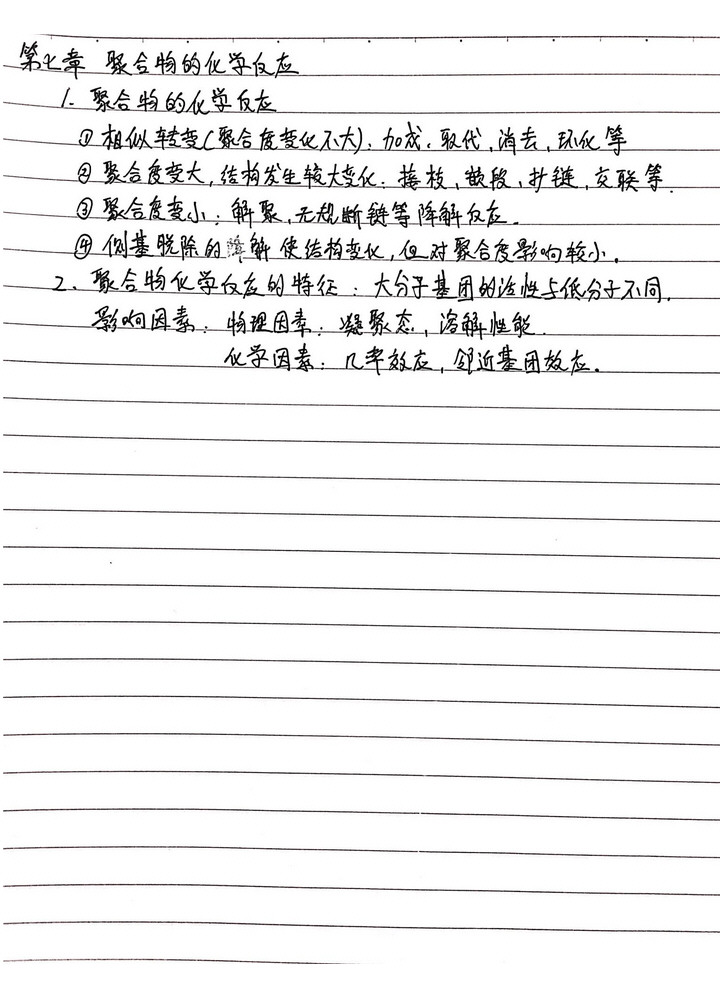 第七章 聚合物的化学反应
1. 聚合物的化学反应
① 相似转变(聚合度变化不大):加成,取代,消去,环化等
② 聚合度变大,结构发生较大变化:接枝,嵌段,扩链,交联等.
③ 聚合度变小:解聚,无规断链等降解反应.
④ 侧基脱除的降解使结构变化,但对聚合度影响较小.
2. 聚合物化学反应的特征:大分子基团的活性与低分子不同.
影响因素:物理因素:凝聚态,溶解性能.
化学因素:几率效应,邻近基团效应.